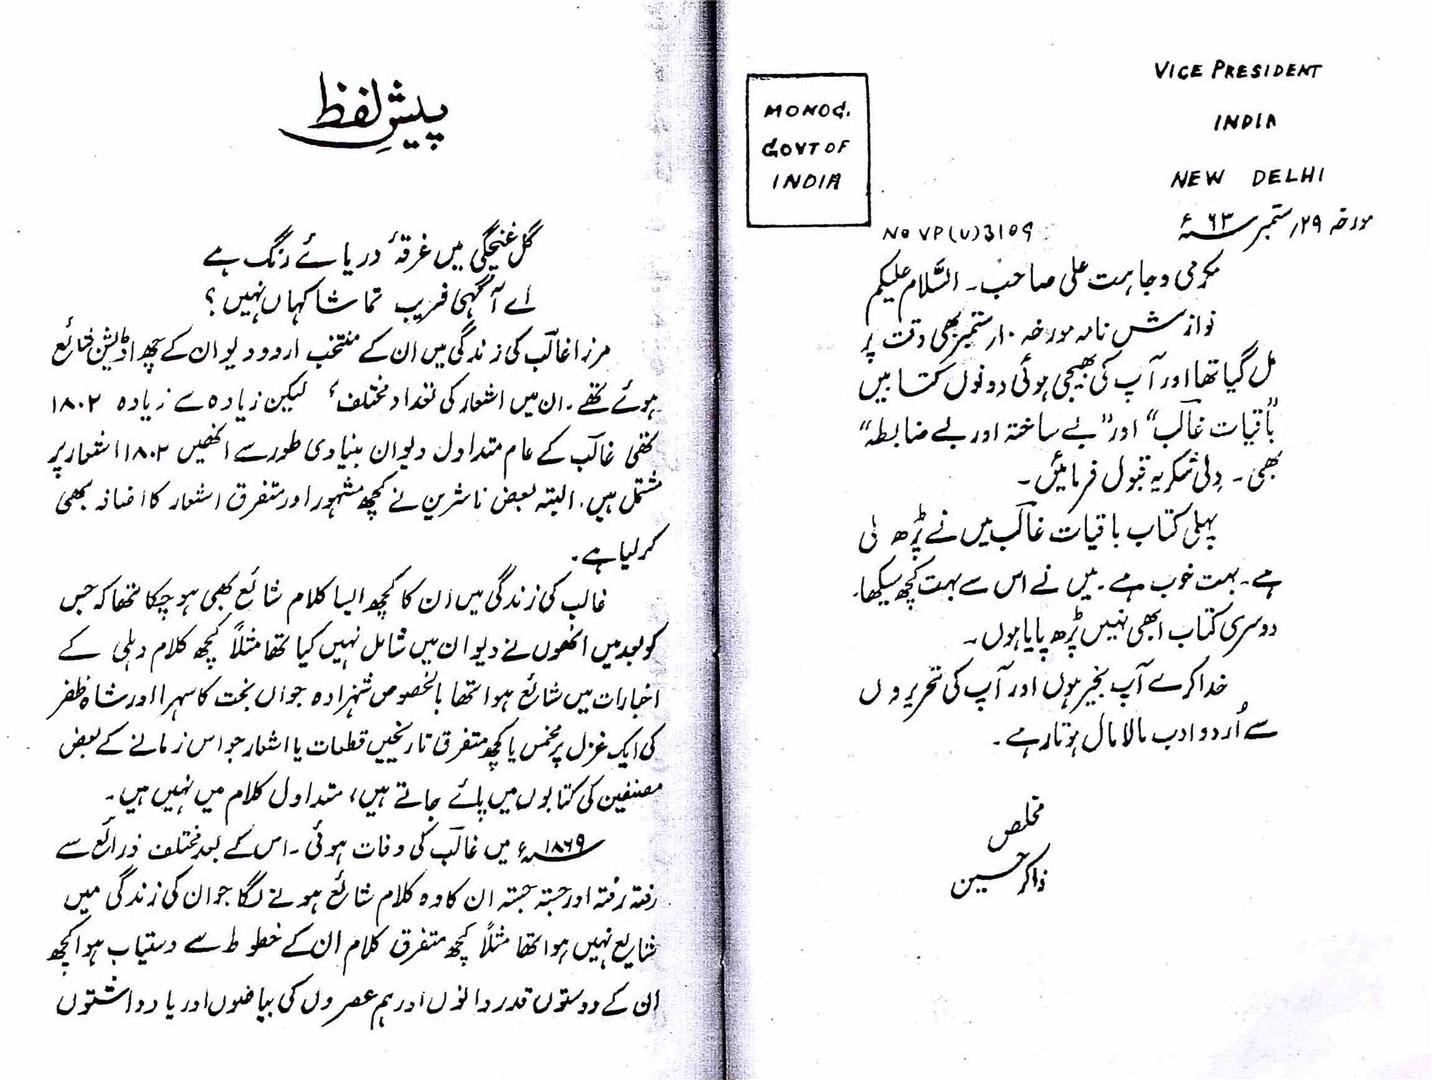 VICE PRESIDENT
INDIA
NEW DELHI
MONOG.
GOVT OF
INDIA
مورخہ ۲۹ ستمبر ۶۳ء
NO VP(U)3109
مکرمی وجاہت علی صاحب ۔ السّلام علیکم
نوازش نامہ مورخہ ۱۰ ستمبر بھی وقت پر
مل گیا تھا اور آپ کی بھیجی ہوئی دونوں کتابیں
"باقیات غالب" اور "بے ساختہ اور بے ضابطہ"
بھی ۔ دِلی شکریہ قبول فرمائیں ۔
پہلی کتاب باقیات غالب میں نے پڑھ لی
ہے ۔ بہت خوب ہے ۔ میں نے اس سے بہت کچھ سیکھا۔
دوسری کتاب ابھی نہیں پڑھ پایا ہوں ۔
خدا کرے آپ بخیر ہوں اور آپ کی تحریروں
سے اُردو ادب مالا مال ہوتا رہے ۔
مخلص
ذاکر حسین
پیشِ لفظ
گل غنچگی میں غرقۂ دریائے رنگ ہے
اے آگہی فریب تماشا کہاں نہیں ؟
مرزا غالب کی زندگی میں ان کے منتخب اردو دیوان کے چھ اڈیشن شائع
ہوئے تھے ۔ ان میں اشعار کی تعداد مختلف لیکن زیادہ سے زیادہ ۱۸۰۲
تھی غالب کے عام متداول دیوان بنیادی طور سے انھیں ۱۸۰۲ اشعار پر
مشتمل ہیں ۔ البتہ بعض ناشرین نے کچھ مشہور اور متفرق اشعار کا اضافہ بھی
کر لیا ہے ۔
غالب کی زندگی میں ان کا کچھ ایسا کلام شائع بھی ہو چکا تھا کہ جس
کو بعد میں انھوں نے دیوان میں شامل نہیں کیا تھا مثلاً کچھ کلام دہلی کے
اخبارات میں شائع ہوا تھا بالخصوص شہزادہ جواں بخت کا سہرا اور شاہ ظفر
کی ایک غزل پر مخمس یا کچھ متفرق تاریخیں قطعات یا اشعار جو اس زمانے کے بعض
مصنفین کی کتابوں میں پائے جاتے ہیں، متداول کلام میں نہیں ہیں ۔
۱۸۶۹ء میں غالب کی وفات ہوئی ۔ اس کے بعد مختلف ذرائع سے
رفتہ رفتہ اور جستہ جستہ ان کا وہ کلام شائع ہونے لگا جو ان کی زندگی میں
شایع نہیں ہوا تھا مثلاً کچھ متفرق کلام ان کے خطوط سے دستیاب ہوا کچھ
ان کے دوستوں قدردانوں اور ہم عصروں کی بیاضوں اور یادداشتوں